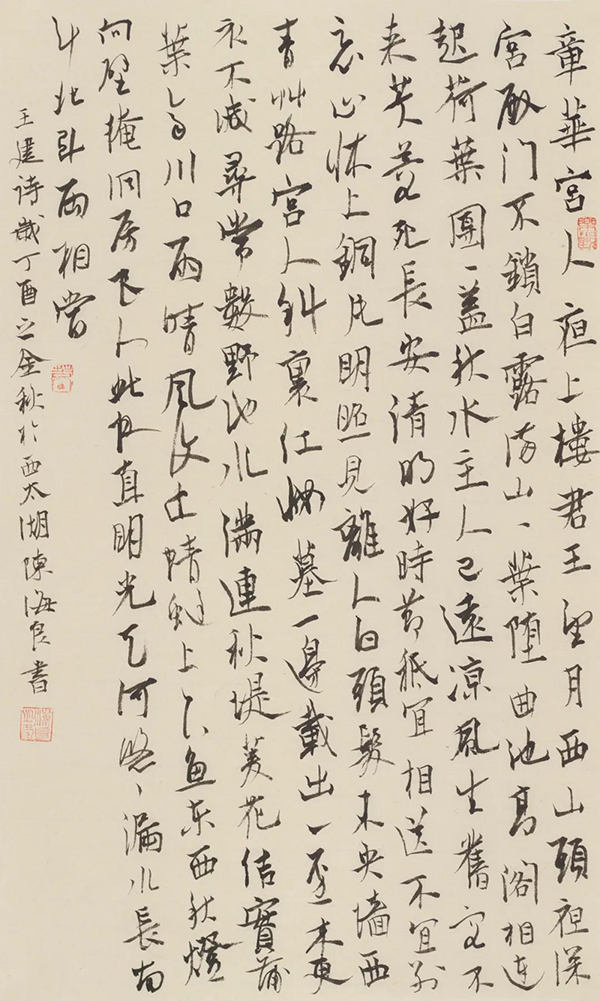 章華宮人夜上樓君王望月西山頭夜深
宮殿门不鎖白露滿山〻葉墮曲池高閣相连
起荷葉團〻蓋秋水主人已遠凉風生舊客不
来芙蓉死長安清明好時節秪宜相送不宜别
惡心牀上銅片明照見離人白頭髮未央墻西
青艸路宮人斜裏红妝墓一邊載出一邊来更
衣不减尋常數野池水滿連秋堤菱花结實蒲
葉齊川口雨晴風復止蜻蜓上下魚东西秋燈
向壁掩洞房良人此夜直明光天河悠〻漏水長南
斗北斗兩相當
王建詩歲丁酉之金秋於西太湖陳海良書